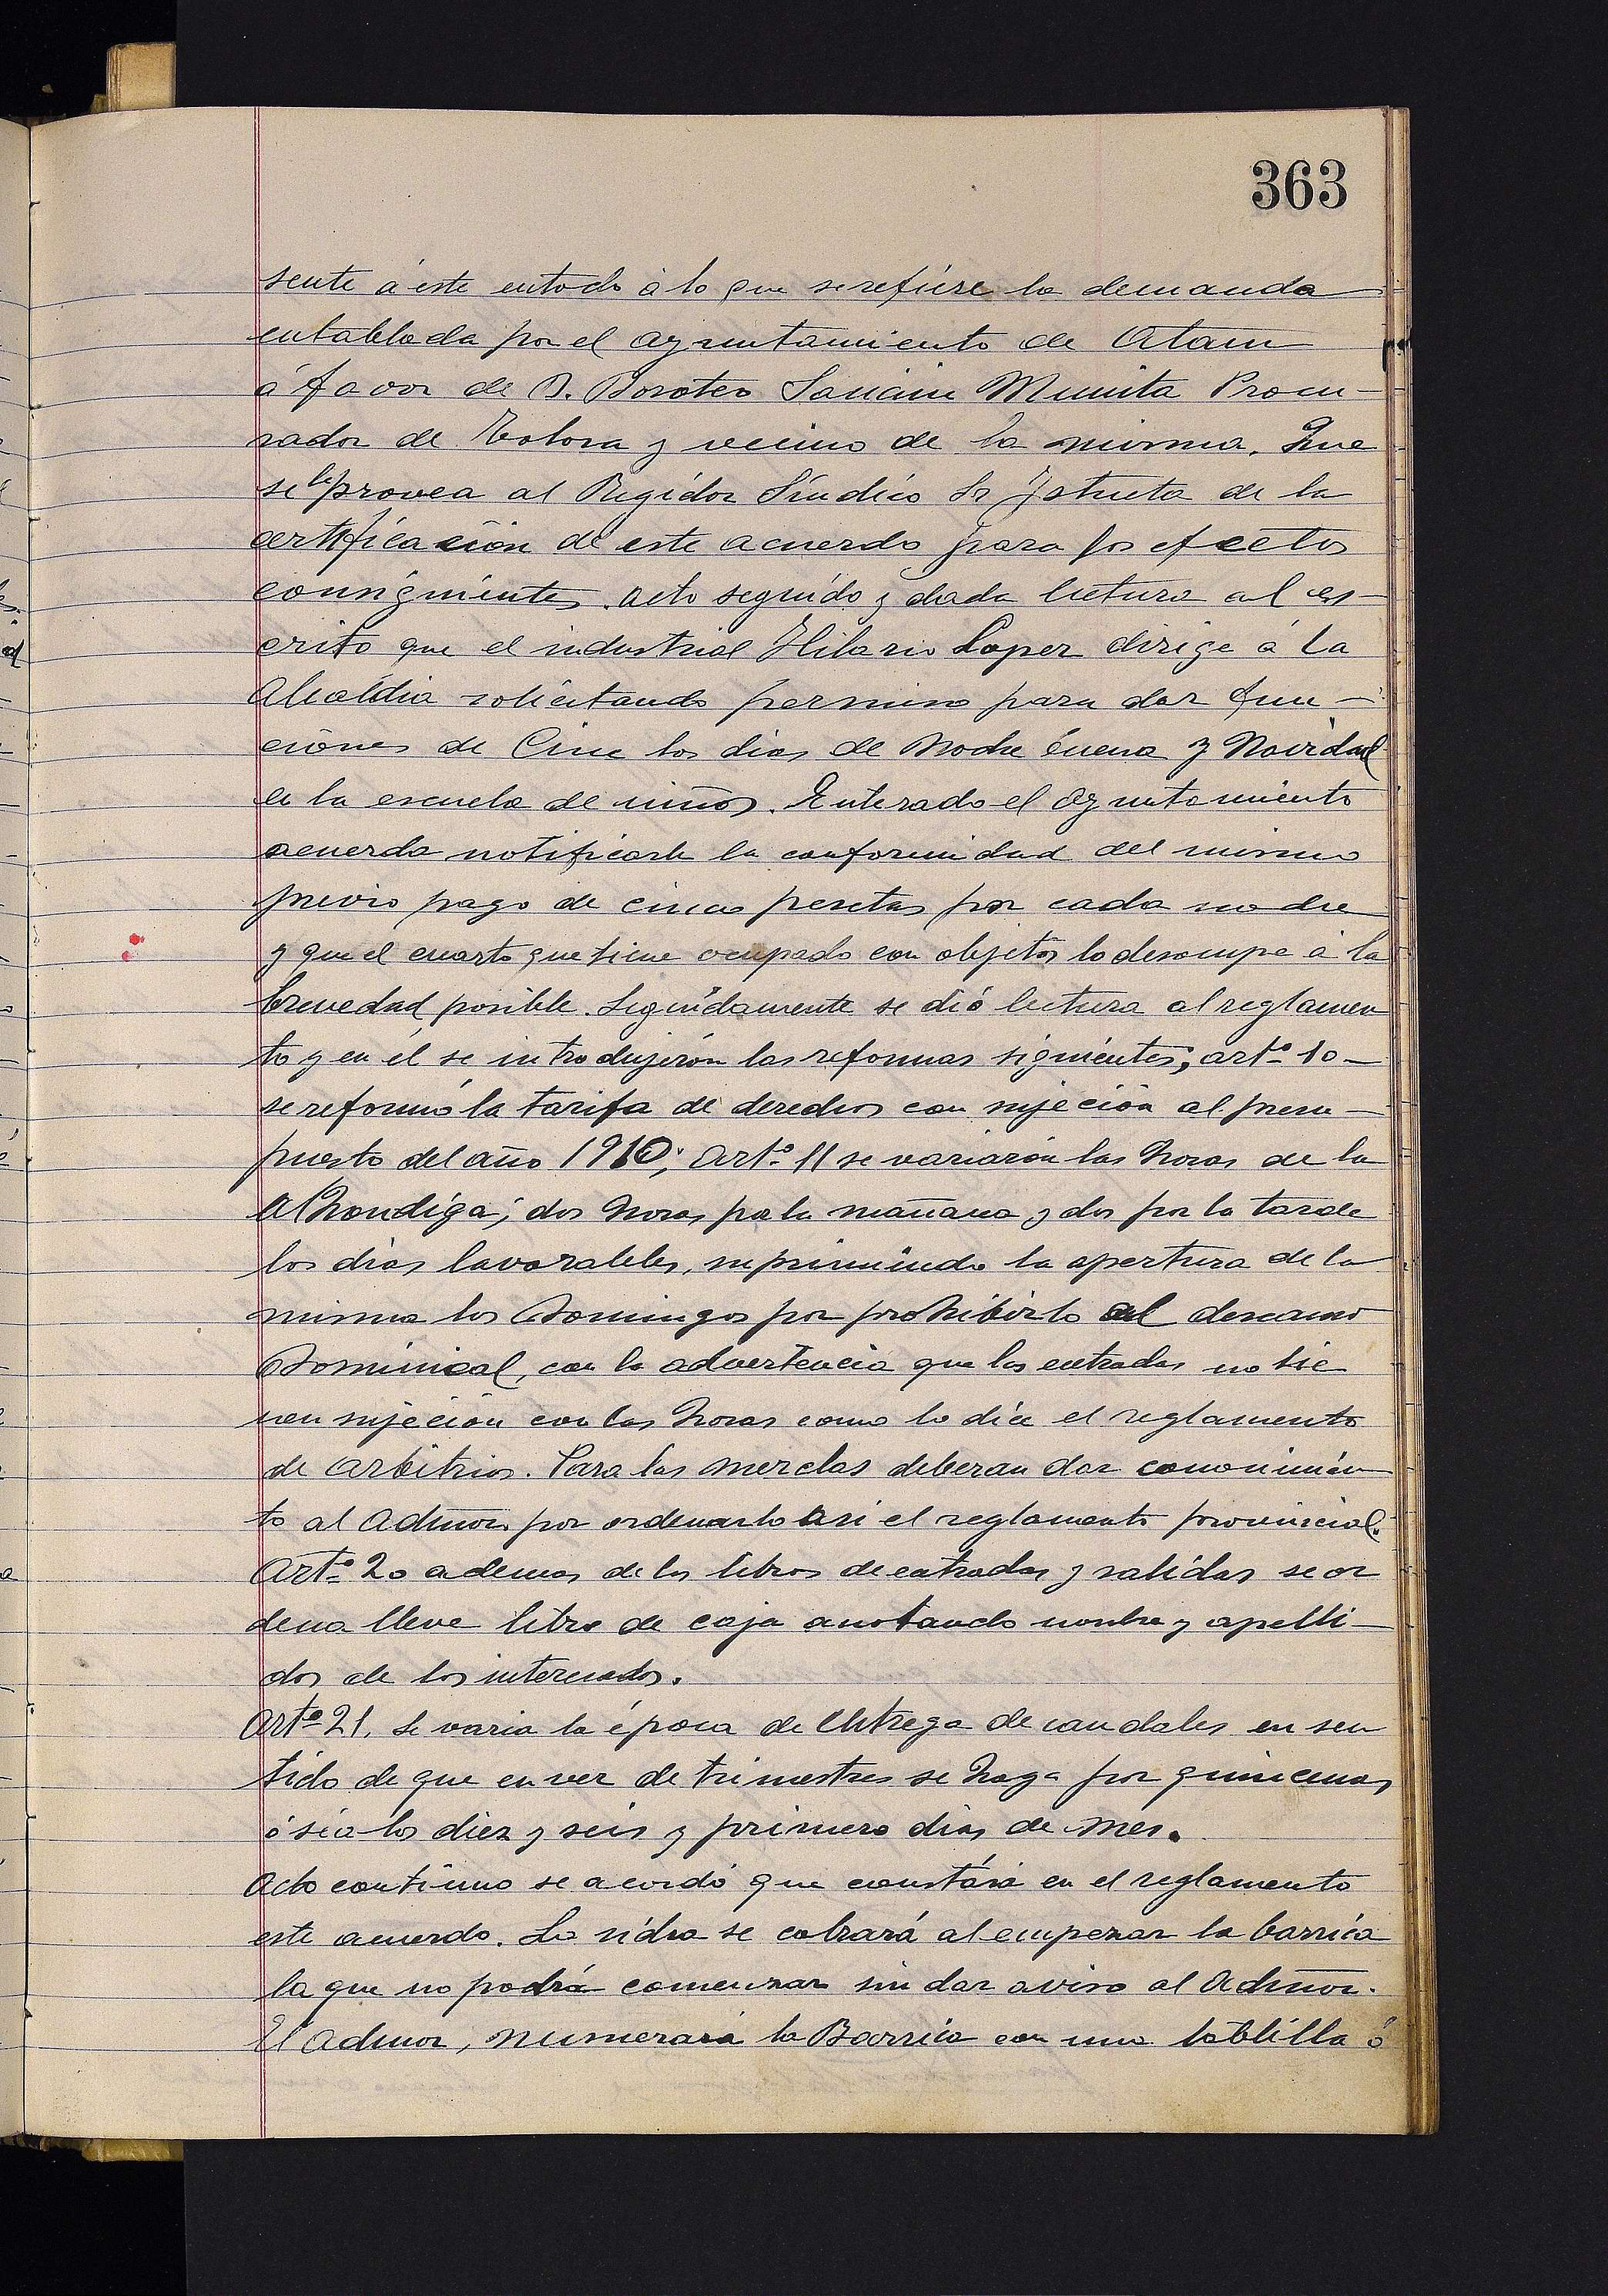 363
sente á este en todo á lo que se refiere la demanda
entablada por el ayuntamiento de Ataun
á favor de D. Doroteo Sauciue Munita Procu-
rador de Tolosa y vecino de la misma. Que
se le provea al Regidor Síndico Sr Ystueta de la
certificación de este acuerdo para los efectos
consiguientes. Acto seguido y dada lectura al es-
crito que el industrial Hilario Loper dirige á la
Alcaldia solicitando permiso para dar fun-
ciones de Cine los dias de Noche buena y Navidad
en la escuela de niños. Enterado el ayuntamiento
acuerda notificarle la conformidad del mismo
previo pago de cinco pesetas por cada noche
y que el cuarto que tiene ocupado con objetos lo desocupe á la
brevedad posible. Seguidamente se dió lectura al reglamen
to y en él se introdujeron las reformas siguientes; artº 10-
se reformó la tarifa de derechos con sujeción al presu-
puesto del año 1910; artº 11 se variaron las horas de la
Alhondiga; dos horas por la mañana y dos por la tarde
los dias lavorables, suprimiendo la apertura de la
misma los Domingos por prohibirlo el descanso
Dominical, con la advertencia que las entradas no tie
nen sujeción con las horas como lo dice el reglamento
de arbitrios. Para las merclas deberan dar conocimien
to al Admor por ordenarlo asi el reglamento provincial.
Artº 20 ademas de los libros de entradas y salidas se or
dena lleve libro de caja anotando nombre y apelli-
dos de los interesados.
Artº 21. Se varia la época de entrega de caudales en sen
tido de que en ver de trimestres se haga por quincenas
ó sea los diez y seis y primero dias de mes.
Acto continuo se acordó que constára en el reglamento
este acuerdo. La sidra se cobrará al emperar la barrica
la que no podrá comenzar sin dar aviso al Admor.
El Admor, numerará la Barrica con una tablilla ó